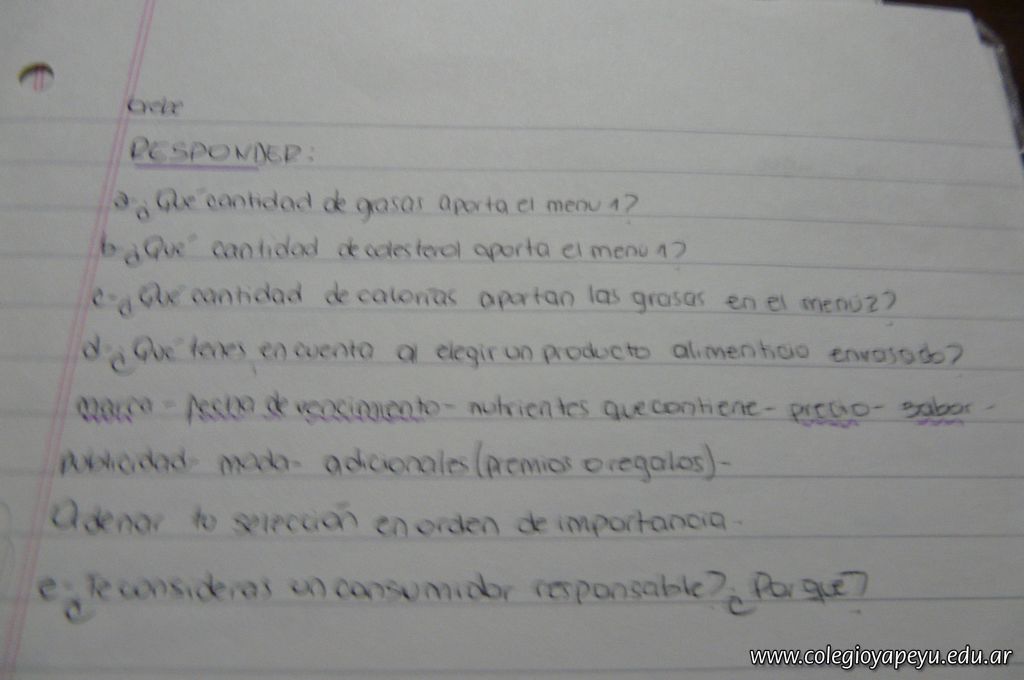 RESPONDER:
a-¿Que cantidad de grasas aporta el menu 1?
b-¿Que cantidad de colesterol aporta el menu 1?
c-¿Que cantidad de calorias aportan las grasas en el menu 2?
d-¿Que tenes en cuenta al elegir un producto alimenticio envasado?
marca - de vencimiento - nutrientes que contiene - precio - sabor -
publicidad - moda - adicionales (premios o regalos) -
Odenar tu selección en orden de importancia.
e-¿Te consideras un consumidor responsable? ¿Por qué?
www.colegioyapeyu.edu.ar